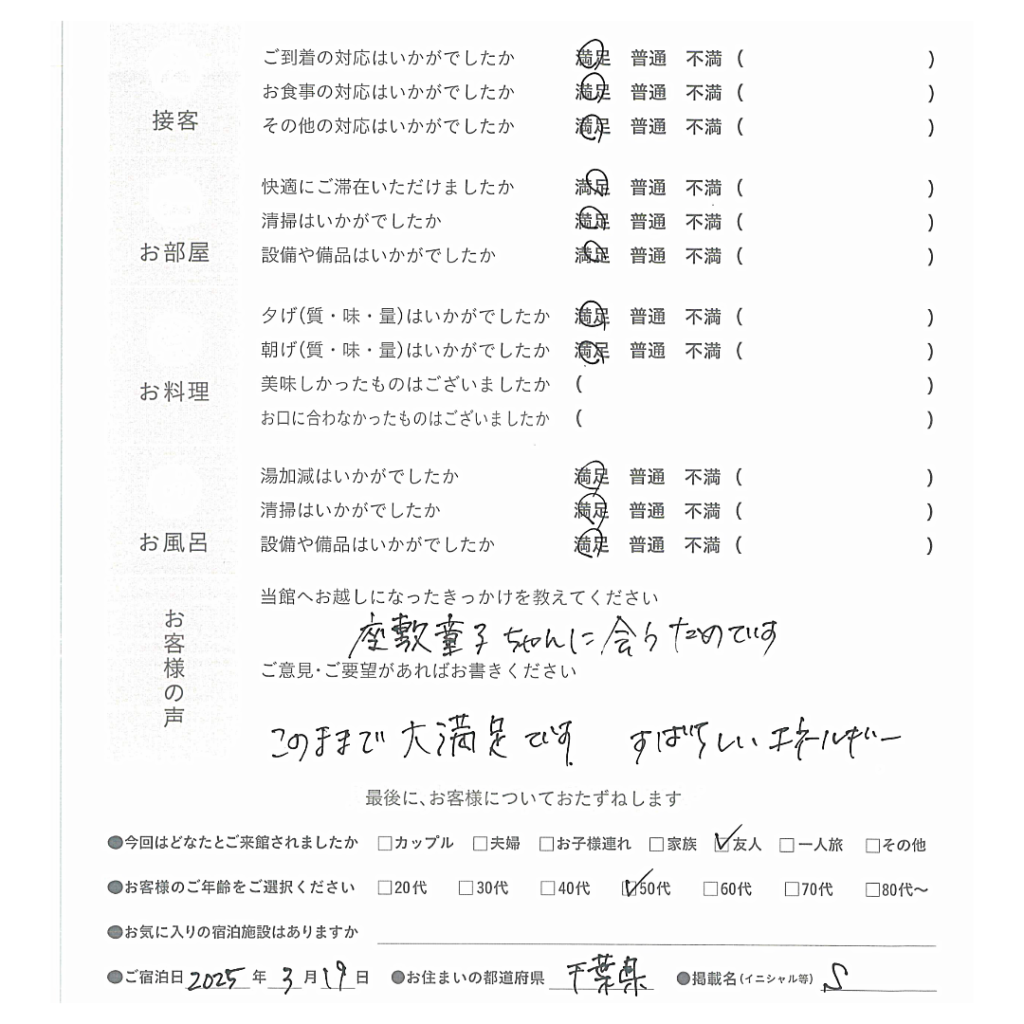 接客
ご到着の対応はいかがでしたか 満足 普通 不満 ( )
お食事の対応はいかがでしたか 満足 普通 不満 ( )
その他の対応はいかがでしたか 満足 普通 不満 ( )
お部屋
快適にご滞在いただけましたか 満足 普通 不満 ( )
清掃はいかがでしたか 満足 普通 不満 ( )
設備や備品はいかがでしたか 満足 普通 不満 ( )
お料理
夕げ(質・味・量)はいかがでしたか 満足 普通 不満 ( )
朝げ(質・味・量)はいかがでしたか 満足 普通 不満 ( )
美味しかったものはございましたか ( )
お口に合わなかったものはございましたか ( )
お風呂
湯加減はいかがでしたか 満足 普通 不満 ( )
清掃はいかがでしたか 満足 普通 不満 ( )
設備や備品はいかがでしたか 満足 普通 不満 ( )
お客様の声
当館へお越しになったきっかけを教えてください
座敷童子ちゃんに会うためです
ご意見・ご要望があればお書きください
このままで大満足です. すばらしいエネルギー
最後に、お客様についておたずねします
●今回はどなたとご来館されましたか □カップル □夫婦 □お子様連れ □家族 ☑友人 □一人旅 □その他
●お客様のご年齢をご選択ください □20代 □30代 □40代 ☑50代 □60代 □70代 □80代〜
●お気に入りの宿泊施設はありますか
●ご宿泊日 2025 年 3 月 19 日 ●お住まいの都道府県 千葉県 ●掲載名(イニシャル等) S